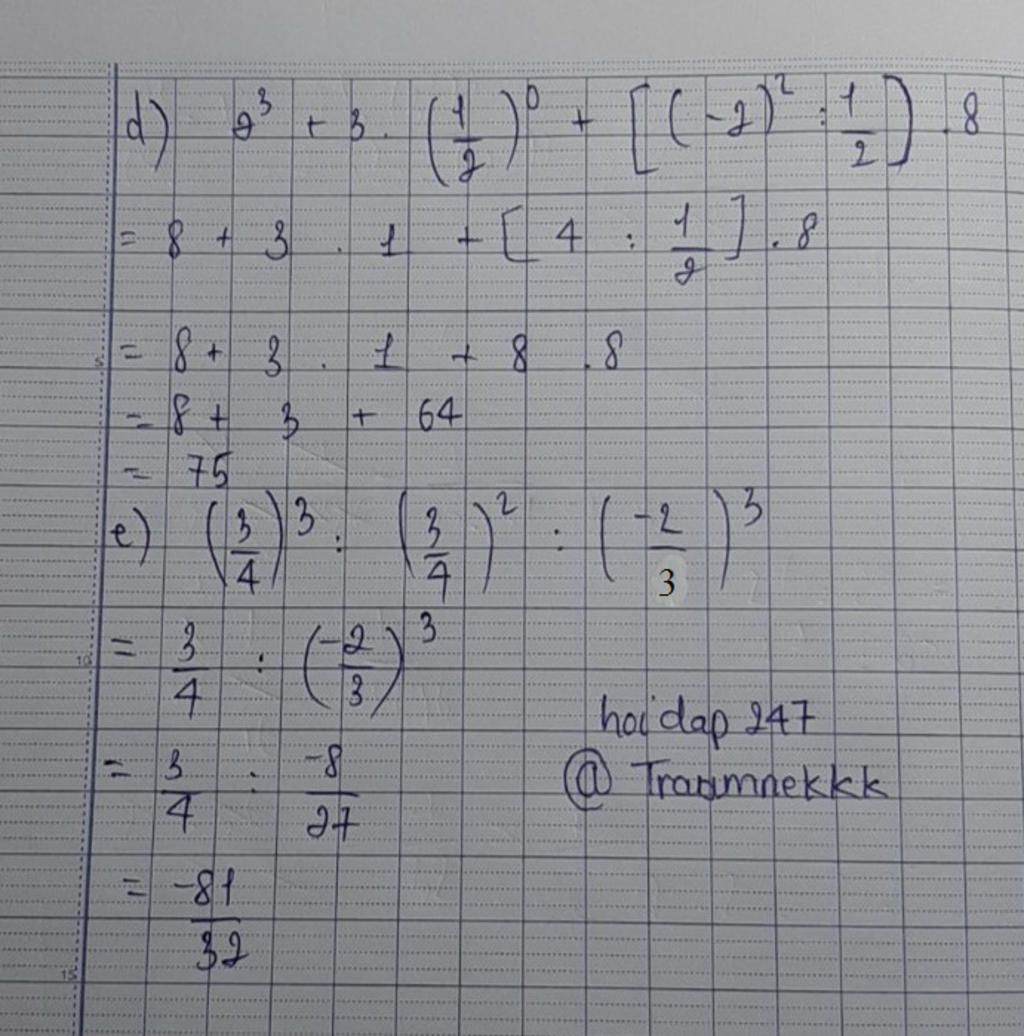 d) 2³ + 3 . (1/2)⁰ + [(-2)² : 1/2] . 8
= 8 + 3 . 1 + [ 4 : 1/2 ] . 8
= 8 + 3 . 1 + 8 . 8
= 8 + 3 + 64
= 75
e) (3/4)³ : (3/4)² : (-2/3)³
= 3/4 : (-2/3)³
= 3/4 : -8/27
= -81/32
hoidap 247
@ Traumnekkk
5
10
15